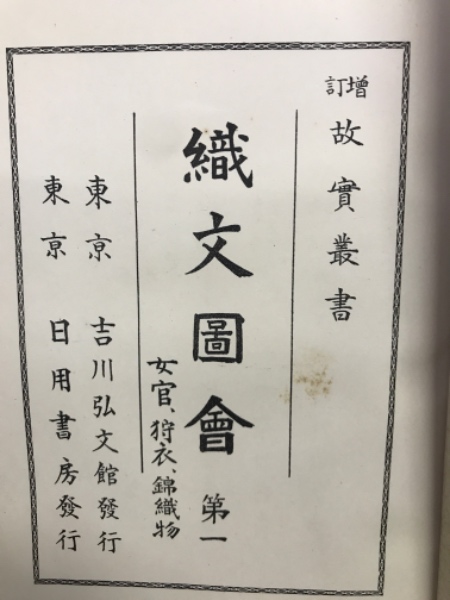 増訂 故實叢書
織文圖會 第一
女官、狩衣、錦織物
東京 吉川弘文館發行
東京 日用書房發行